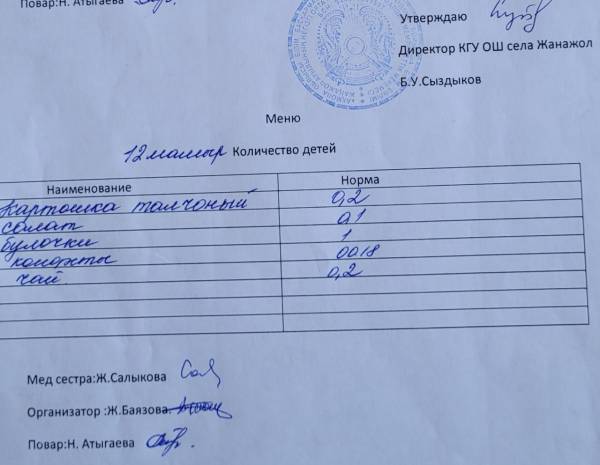 Повар:Н. Атыгаева
Утверждаю
Директор КГУ ОШ села Жанажол
Б.У.Сыздыков
Меню
12 мамыр Количество детей
Наименование Норма
Картошка толчоный 0,2
салат 0,1
булочки 1
конфеты 0018
чай 0,2
Мед сестра:Ж.Салыкова
Организатор :Ж.Баязова.
Повар:Н. Атыгаева